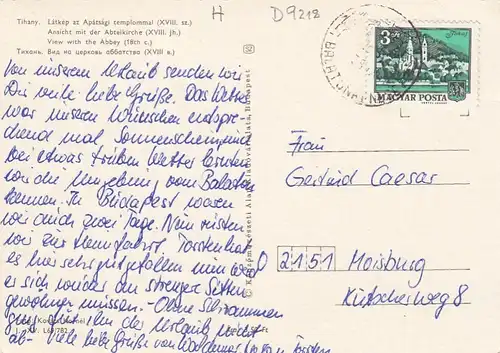 H
D9218
Tihany. Látkép az Apátsági templommal (XVIII. sz.)
Ansicht mit der Abteikirche (XVIII. jh.)
View with the Abbey (18th c.)
Тихонь. Вид на церковь аббатство (XVIII в.)
Von unserem Urlaub senden wir
Dir viele liebe Grüße. Das Wetter
war unseren Wünschen entspre-
chend mal Sonnenschein, und
bei etwas trüben Wetter lernten
wir die Umgebung vom Balaton
kennen. In Budapest waren
wir auch zwei Tage. Nun rüsten
wir zur Heimfahrt. Torsten hat
es hier sehr gut gefallen nun wird
er sich wieder an strenge Sitten
gewöhnen müssen. - Ohne Schwimmen
ging es bei ihm der Urlaub nicht
ab - Viele liebe Grüße von Waldemar
Képzőművészeti Alap Kiadóvállalata, Budapest
3
Tihany
MAGYAR POSTA
Frau
Gertrud Caesar
2151 Moisburg
Kutscherweg 8